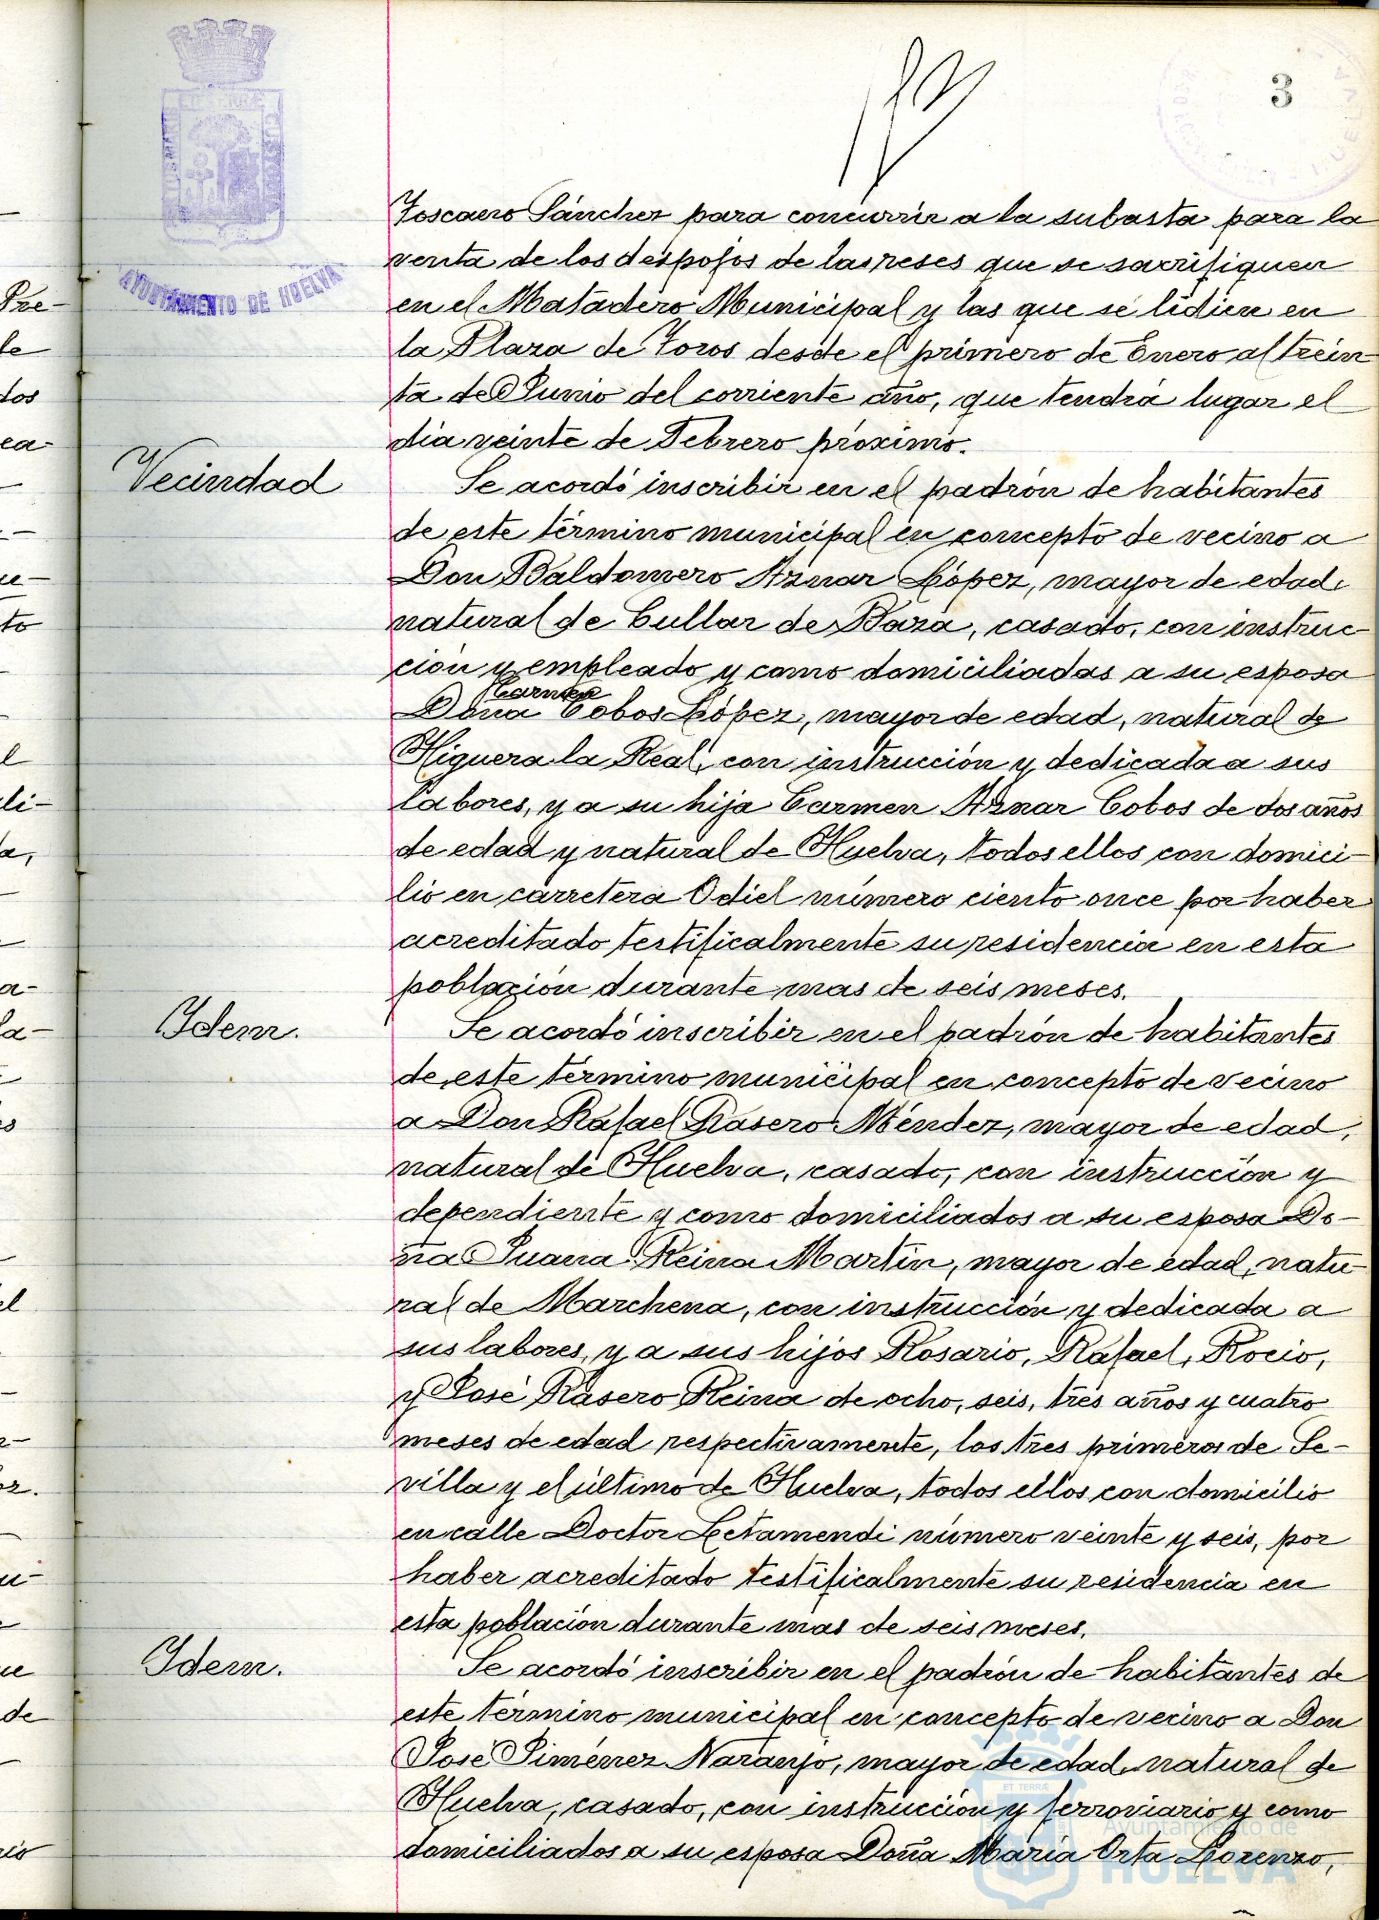 3
Toscano Sánchez para concurrir a la subasta para la
venta de los despojos de las reses que se sacrifiquen
en el Matadero Municipal y las que se lidien en
la Plaza de Toros desde el primero de Enero al trein-
ta de Junio del corriente año, que tendrá lugar el
dia veinte de Febrero próximo.
Vecindad
Se acordó inscribir en el padrón de habitantes
de este término municipal en concepto de vecino a
Don Baldomero Aznar López, mayor de edad,
natural de Cullar de Baza, casado, con instruc-
ción y empleado y como domiciliadas a su esposa
Carmen
Doña Cobos López, mayor de edad, natural de
Higuera la Real, con instrucción y dedicada a sus
labores, y a su hija Carmen Aznar Cobos de dos años
de edad y natural de Huelva, todos ellos con domici-
lio en carretera Odiel número ciento once por haber
acreditado testificalmente su residencia en esta
población durante mas de seis meses.
Idem.
Se acordó inscribir en el padrón de habitantes
de este término municipal en concepto de vecino
a Don Rafael Rasero Méndez, mayor de edad,
natural de Huelva, casado, con instrucción y
dependiente y como domiciliados a su esposa Do-
ña Juana Reina Martín, mayor de edad, natu-
ral de Marchena, con instrucción y dedicada a
sus labores, y a sus hijos Rosario, Rafael, Rocio,
y José Rasero Reina de ocho, seis, tres años y cuatro
meses de edad respectivamente, los tres primeros de Se-
villa y el último de Huelva, todos ellos con domicilio
en calle Doctor Letamendi número veinte y seis, por
haber acreditado testificalmente su residencia en
esta población durante mas de seis meses.
Idem.
Se acordó inscribir en el padrón de habitantes de
este término municipal en concepto de vecino a Don
José Jiménez Naranjo, mayor de edad, natural de
Huelva, casado, con instrucción y ferroviario y como
domiciliados a su esposa Doña María Orta Lorenzo,
AYUNTAMIENTO DE HUELVA
Ayuntamiento de
HUELVA